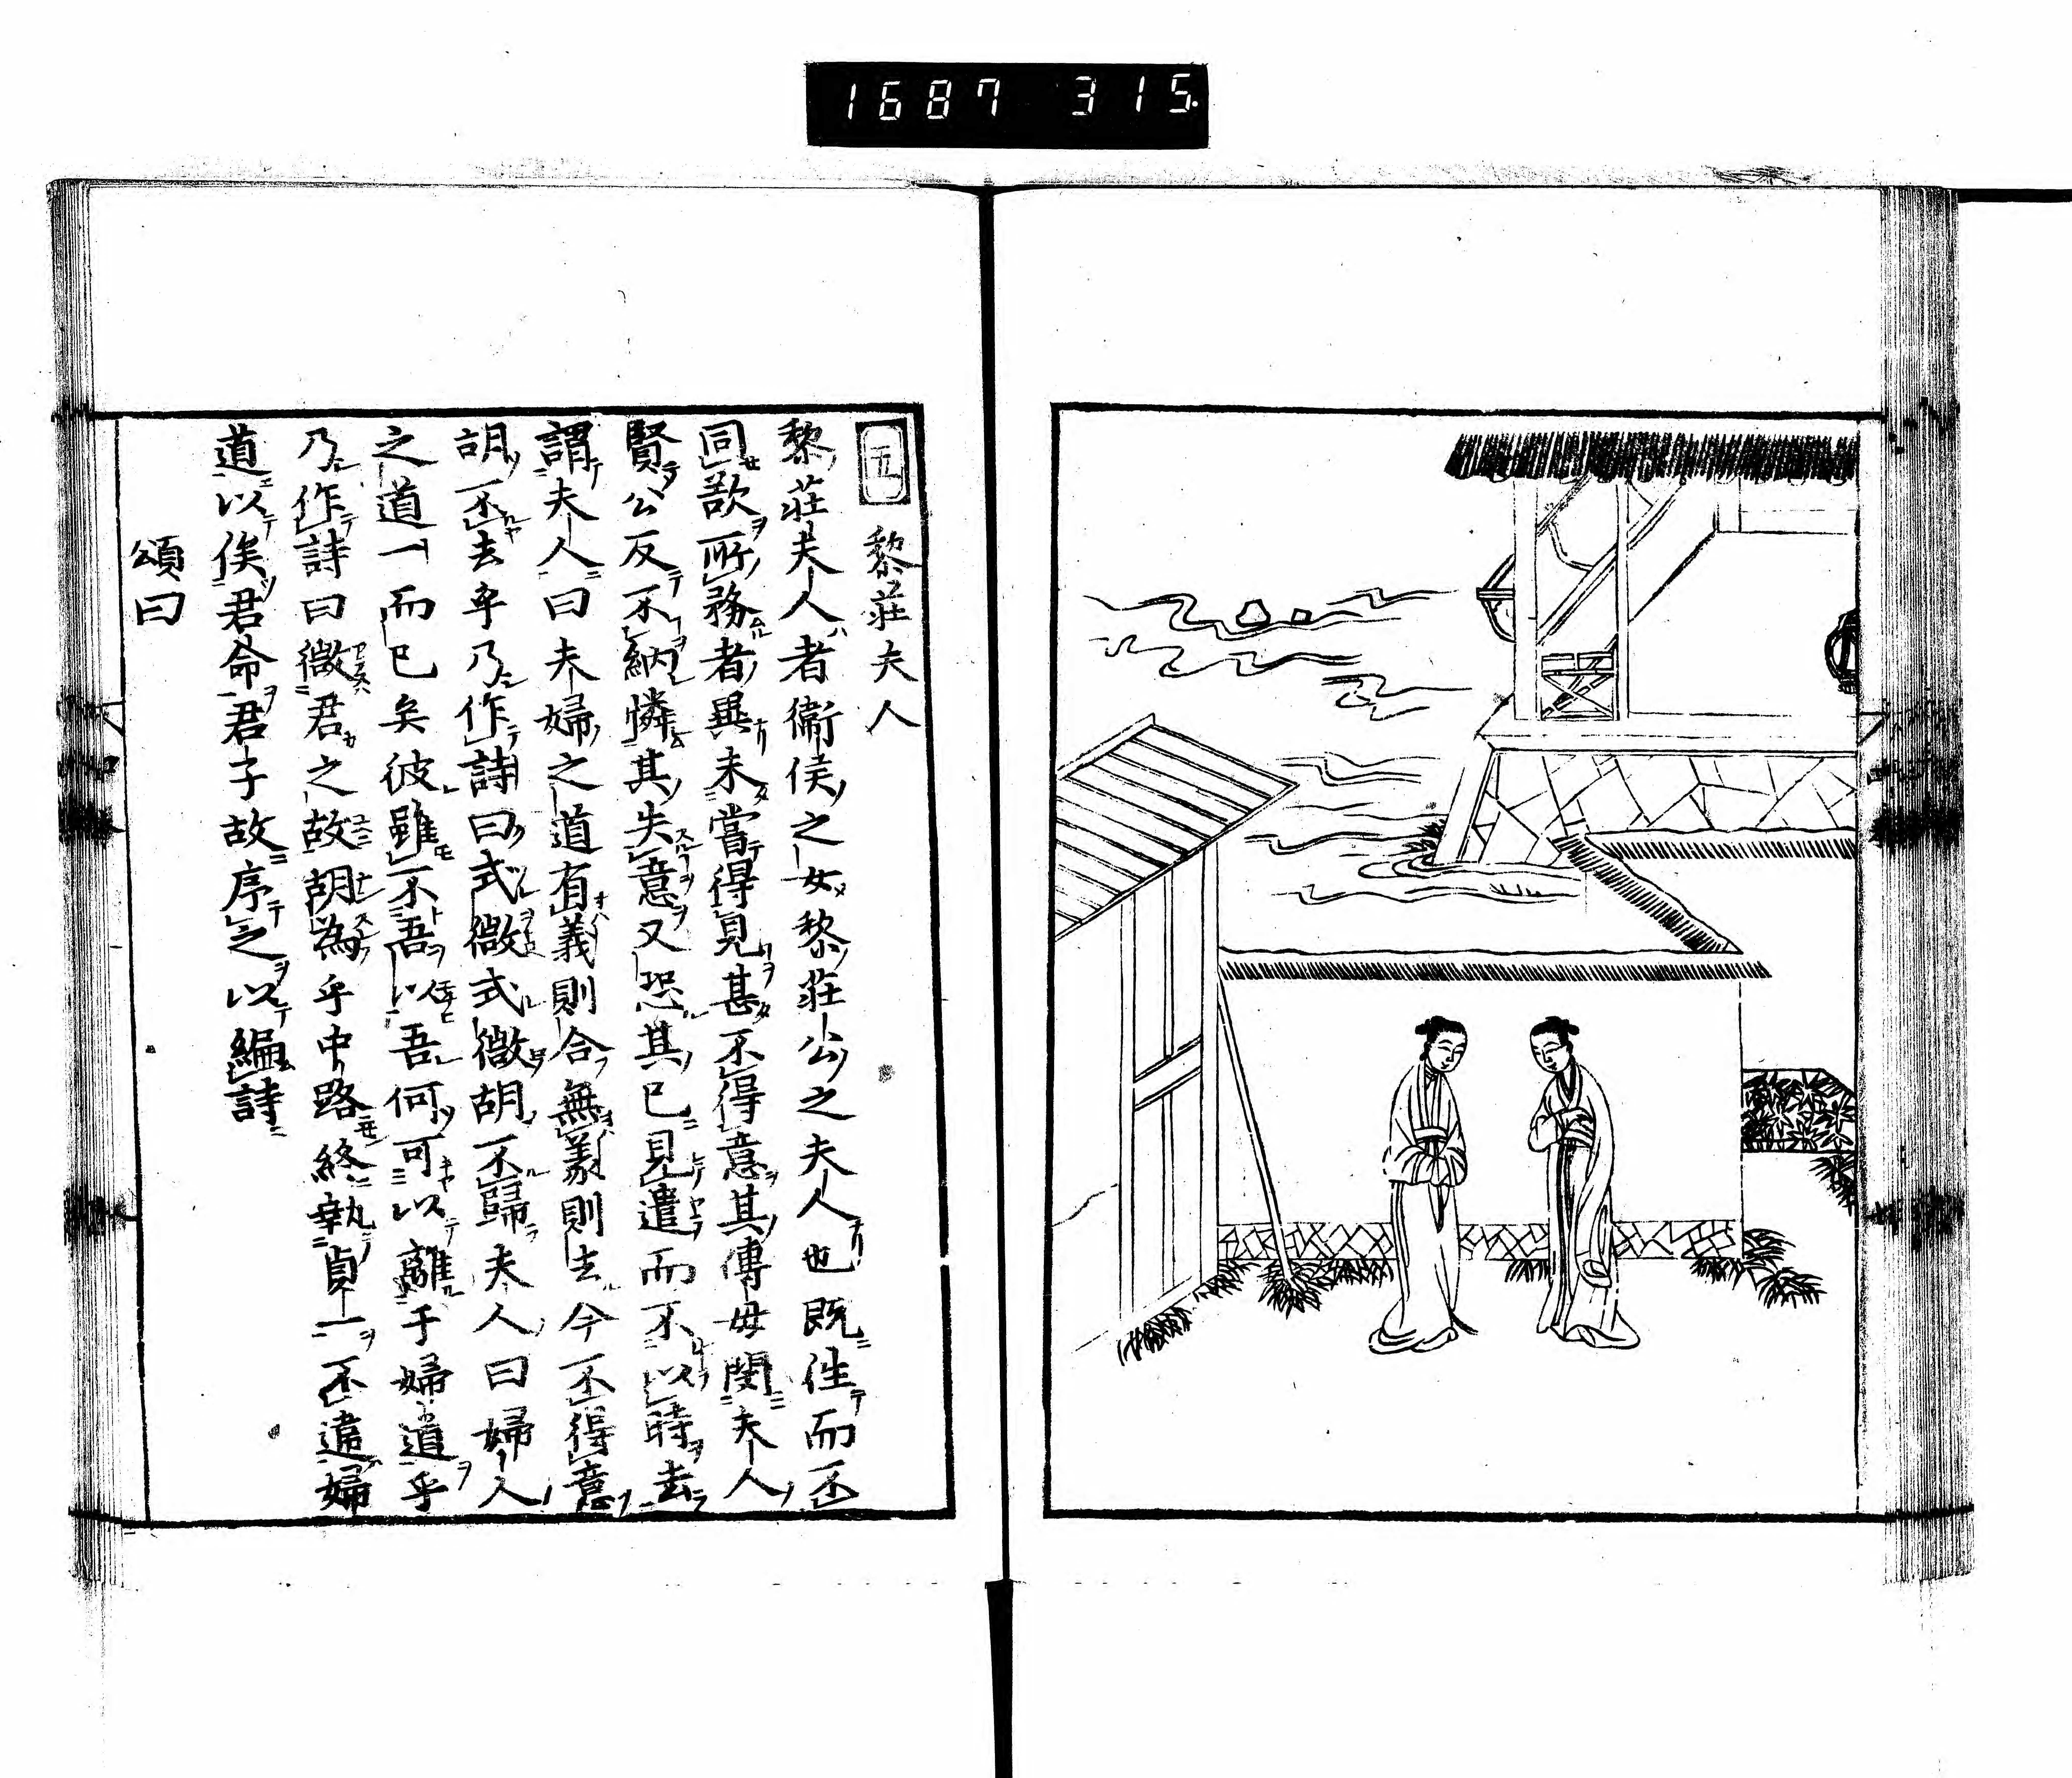 1687 315.
五 黎莊夫人
黎莊夫人者衞侯之女黎莊公之夫人也既往而不
同欲所務者異未嘗得見甚不得意其傅母閔夫人
賢公反不納憐其失意又恐其已見遣而不以時去
謂夫人曰夫婦之道有義則合無義則去今不得意
胡不去乎乃作詩曰式微式微胡不歸夫人曰婦人
之道一而已矣彼雖不吾以吾何可以離于婦道乎
乃作詩曰微君之故胡為乎中路終執貞一不違婦
道以俟君命君子故序之以編詩
頌曰